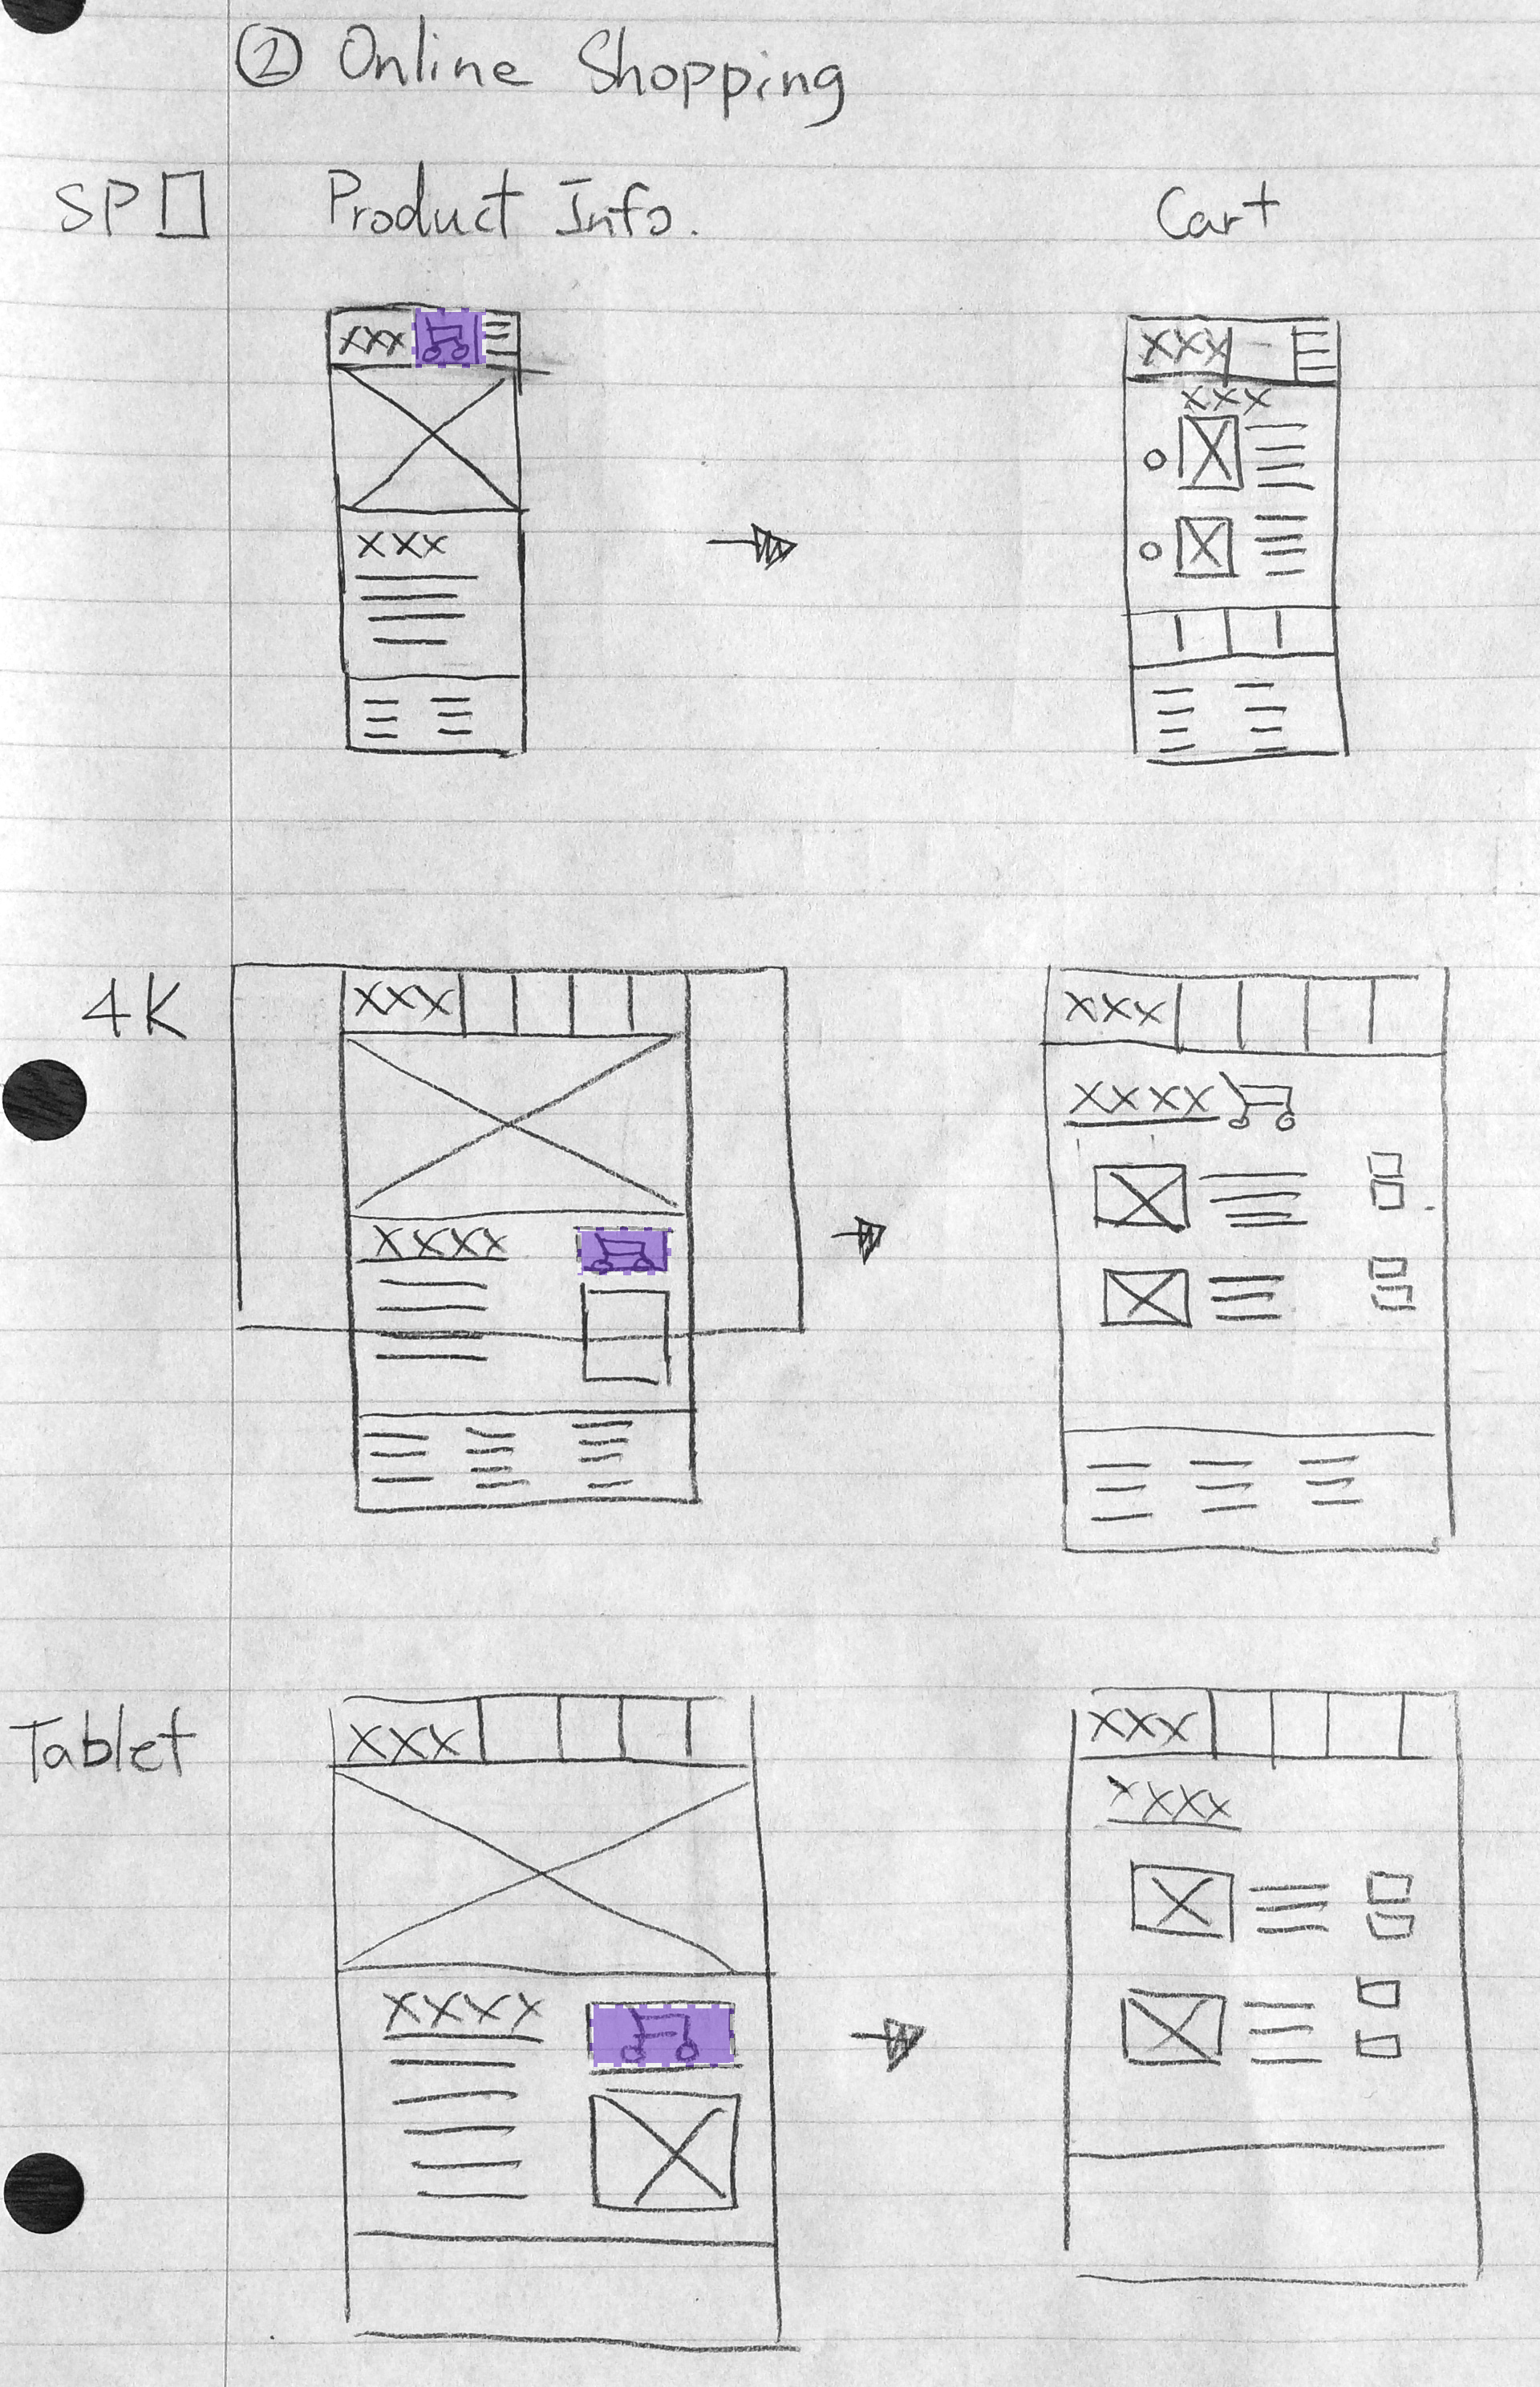 ② Online Shopping
SP Product Info. Cart
xxx xxx
xxx
xxx
4K xxx xxx
xxxx
xxxx
Tablet xxx xxx
xxxx
xxxx